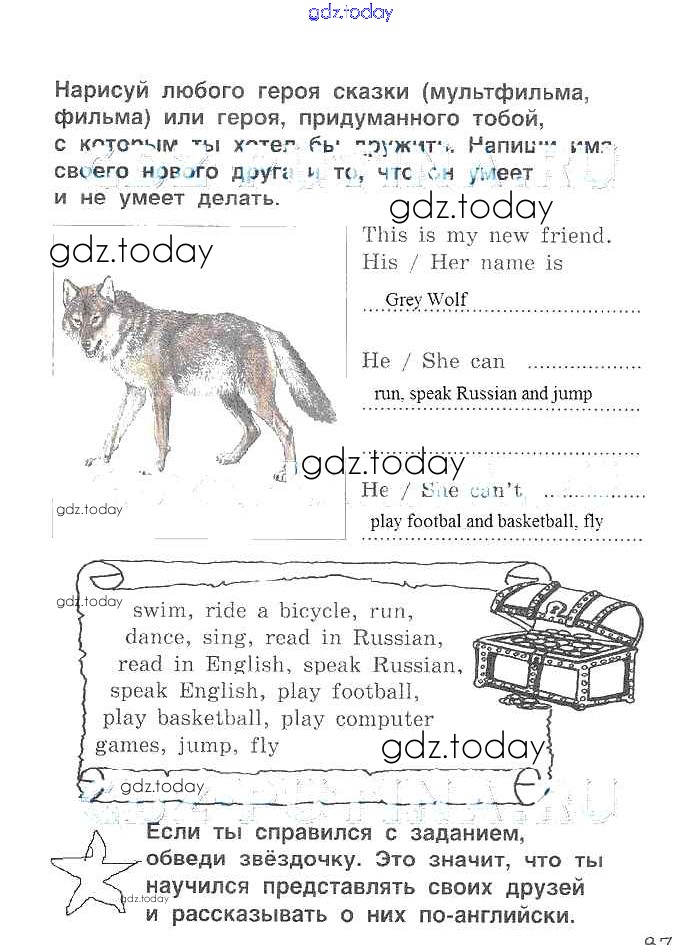 gdz.today
Нарисуй любого героя сказки (мультфильма,
фильма) или героя, придуманного тобой,
с которым ты хотел бы дружить. Напиши имя
своего нового друга и то, что он умеет
и не умеет делать.
gdz.today
gdz.today
This is my new friend.
His / Her name is
Grey Wolf
He / She can
run, speak Russian and jump
gdz.today
He / She can't
gdz.today
play footbal and basketball, fly
gdz.today
swim, ride a bicycle, run,
dance, sing, read in Russian,
read in English, speak Russian,
speak English, play football,
play basketball, play computer
games, jump, fly
gdz.today
gdz.today
Если ты справился с заданием,
обведи звёздочку. Это значит, что ты
научился представлять своих друзей
gdz.today
и рассказывать о них по-английски.